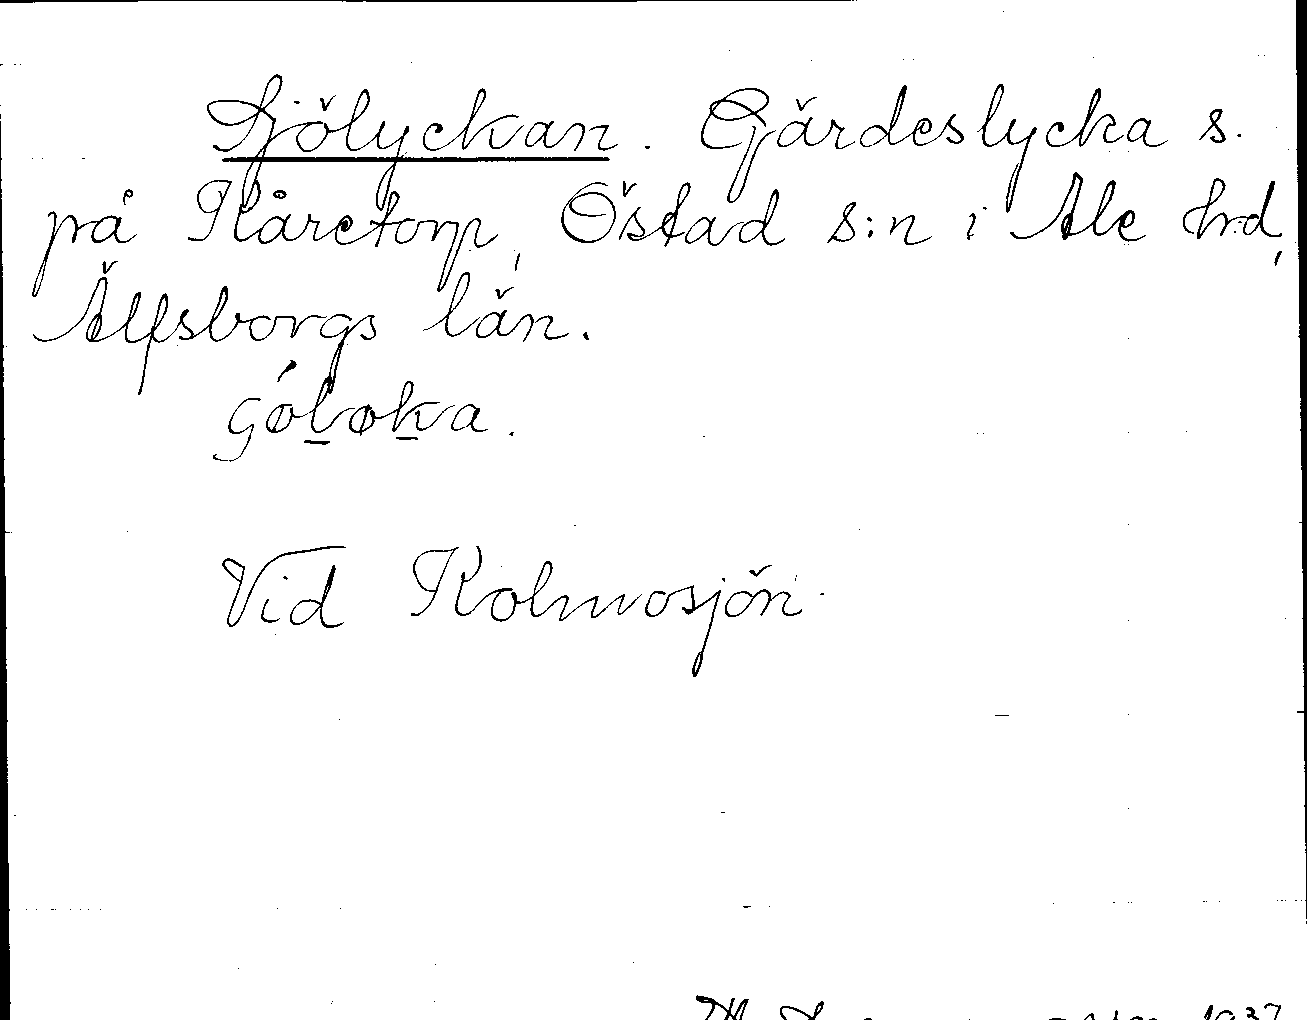 Sjölyckan. Gärdeslycka s.
på Kåretorp, Östad s:n i Ale hrd,
Älfsborgs län.
Vid Kolmosjön.
1937